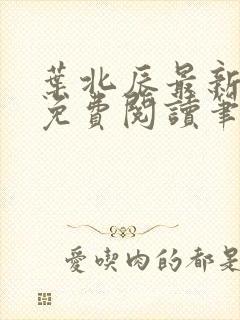 葉北辰最新
免費閱讀筆
愛喫肉的都是